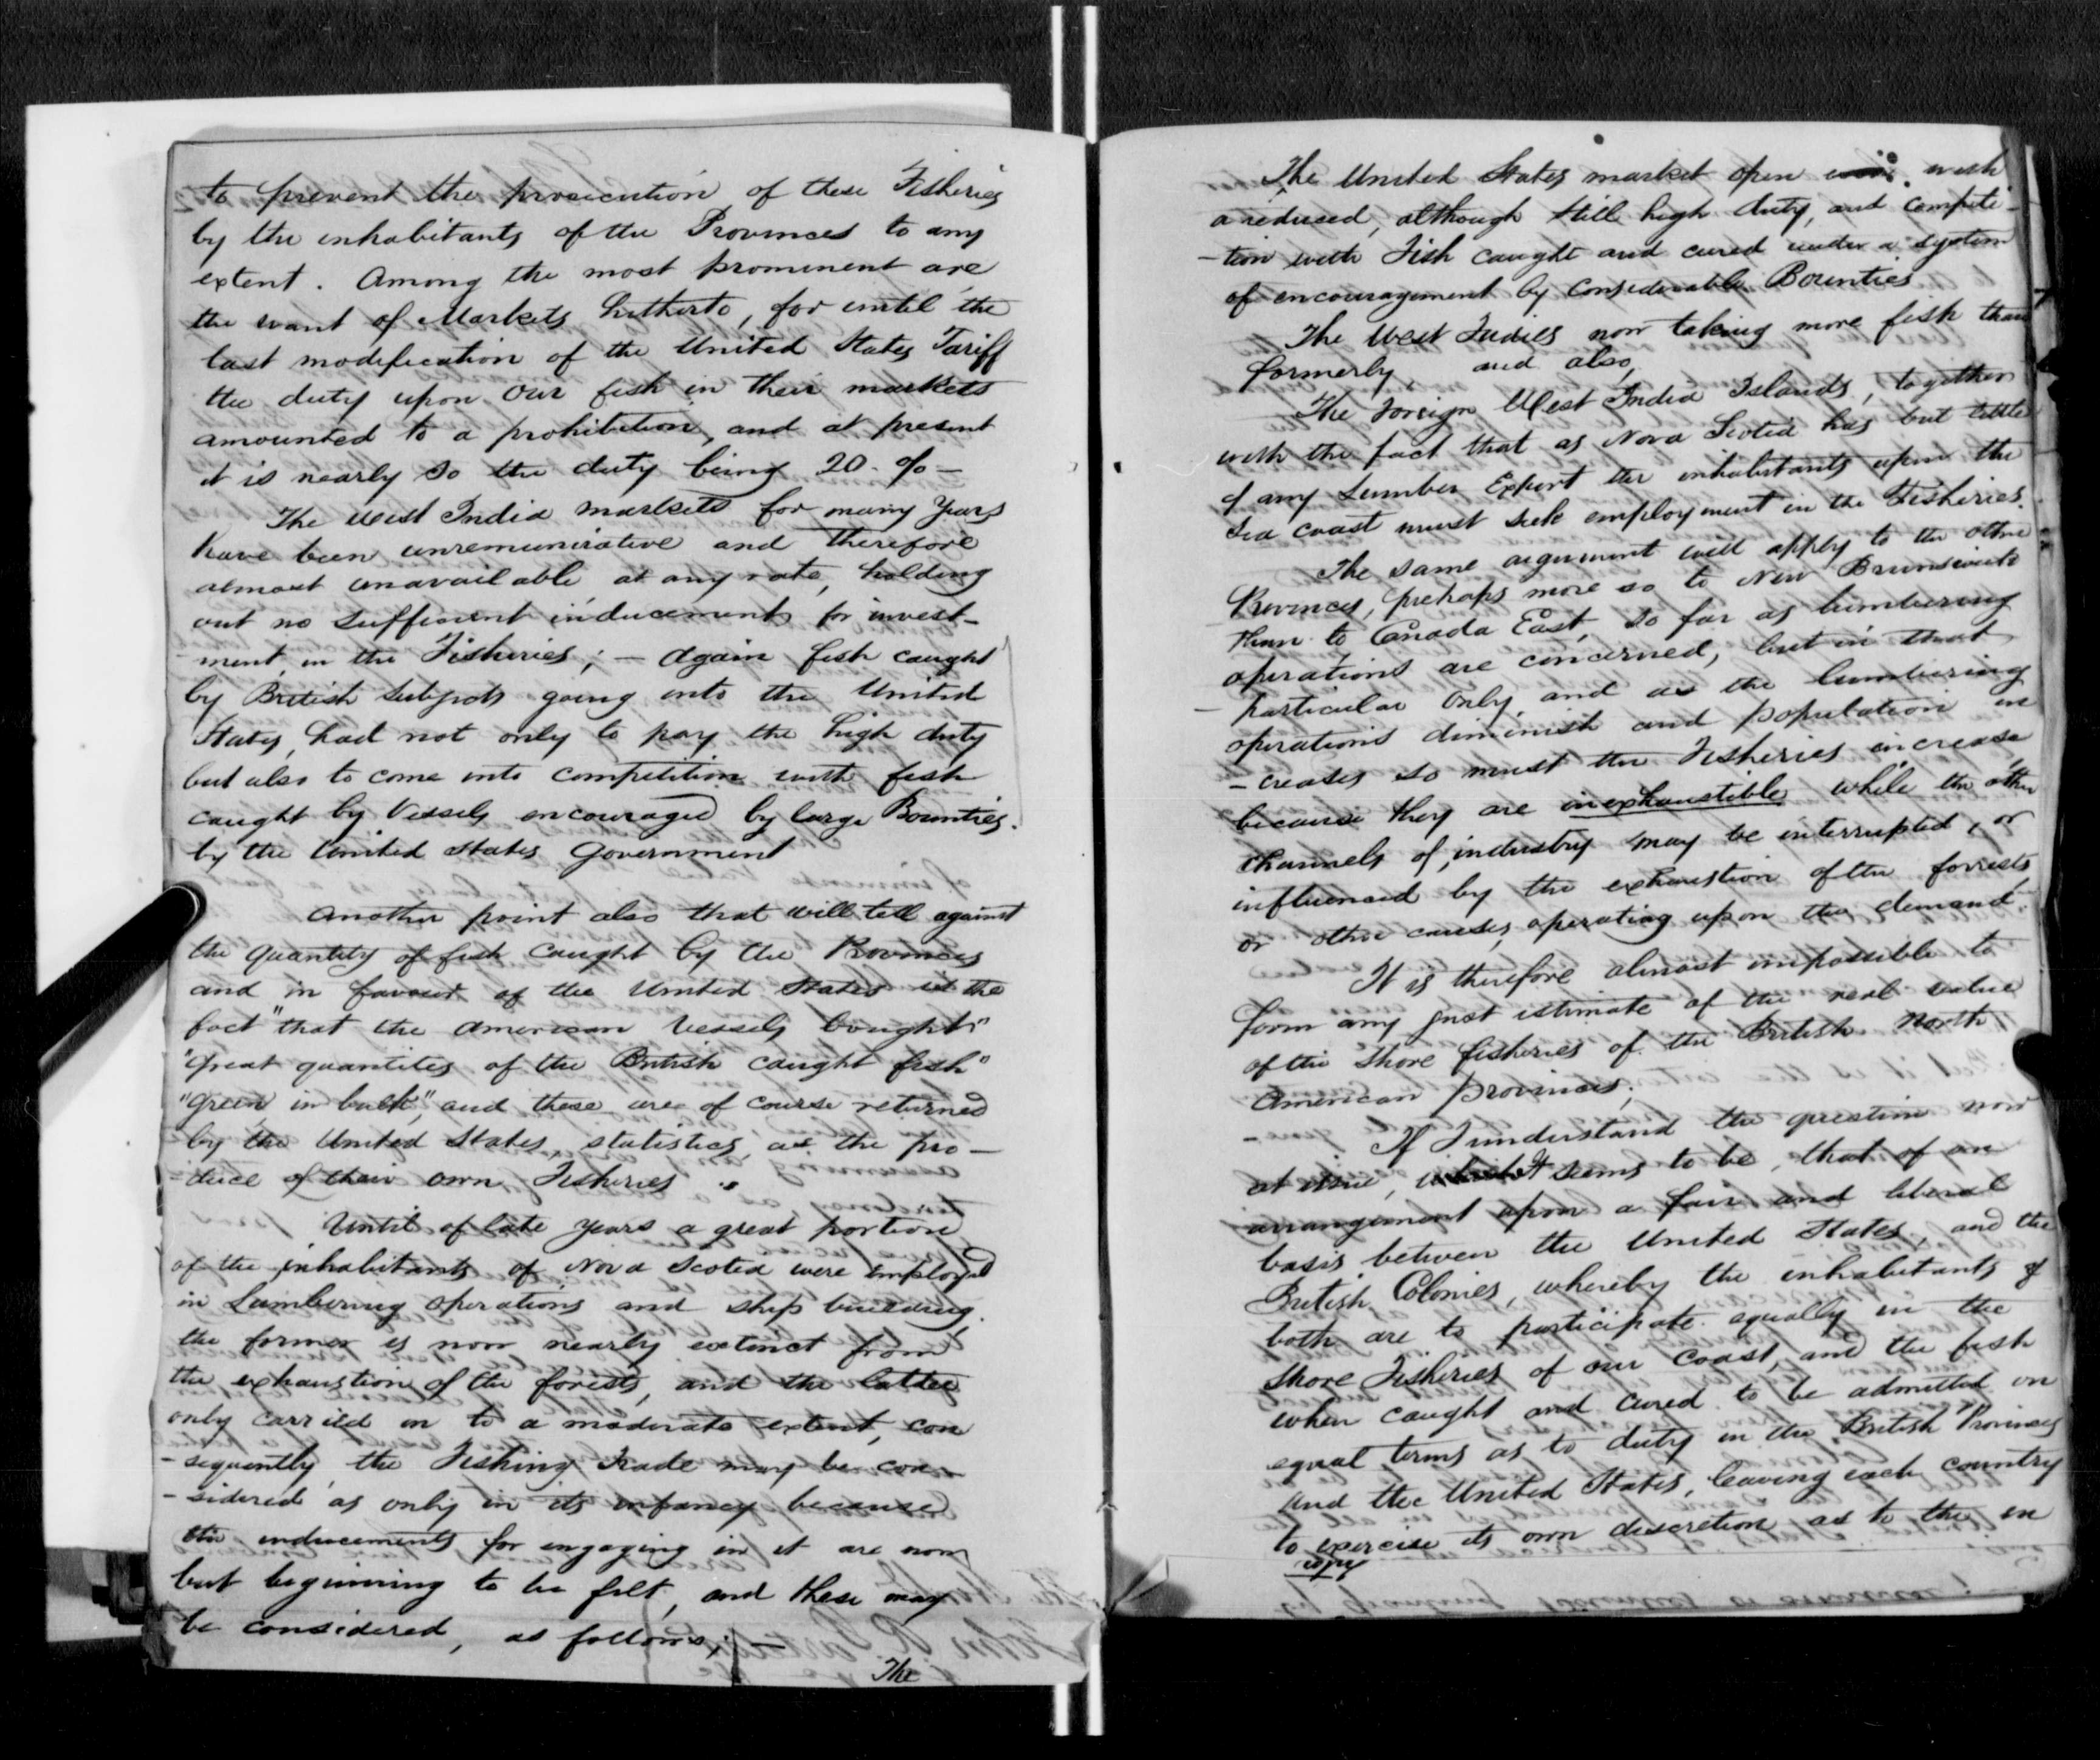 to prevent the prosecution of these Fisheries
by the inhabitants of the Provinces to any
extent. Among the most prominent are
the want of Markets hitherto, for until the
last modification of the United States Tariff
the duty upon our fish in their markets
amounted to a prohibition, and at present
it is nearly so the duty being 20 %—
The West India markets for many years
have been unremunirative and therefore
almost unavailable, at any rate, holding
out no sufficient inducements for invest-
ment in the Fisheries; — Again fish caught
by British Subjects going into the United
States, had not only to pay the high duty
but also to come into competition with fish
caught by Vessels encouraged by large Bounties.
by the United States Government
Another point also that will tell against
the quantity of fish caught by the Provinces
and in favour of the United States is the
fact "that the American Vessels bought"
"great quantites of the British caught fish"
"green in bulk", and these are of course returned
by the United States, statistics, as the pro-
-duce of their own Fisheries.
Until of late years a great portion
of the inhabitants of Nova Scotia were employed
in Lumbering operations and ship building.
the former is now nearly extinct from
the exhaustion of the forests, and the latter
only carried on to a moderate extent, con
-sequently the Fishing Trade may be con-
-sidered as only in its infancy because
the inducements for engaging in it are now
but beginning to be felt, and these may
be considered, as follows; —
The
The United States market open with
a reduced, although still high duty, and competi-
-tion with Fish caught and cured under a system
of encouragement by considerable Bounties
The West Indies now taking more fish than
formerly, and also,
The Foreign West India Islands, together
with the fact that as Nova Scotia has but little
if any Lumber Export the inhabitants upon the
Sea coast must seek employment in the Fisheries.
The same argument will apply to the other
Provinces, perhaps more so to New Brunswick
than to Canada East, so far as lumbering
operations are concerned, but in that
particular only, and as the lumbering
operations diminish and population in
-creases so must the Fisheries increase
because they are inexhaustible while the other
channels of industry may be interrupted, or
influenced by the exhaustion of the forrests
or other causes operating upon the demand.
It is therefore almost impossible to
form any just estimate of the real value
of the shore fisheries of the British North
American Provinces.
If I understand the question now
at issue, It seems to be, that of an
arrangement upon a fair and liberal
basis between the United States, and the
British Colonies, whereby the inhabitants of
both are to participate equally in the
shore Fisheries of our coast, and the fish
when caught and cured to be admitted on
equal terms as to duty in the British Provinces
and the United States, leaving each country
to exercise its own discretion as to the en